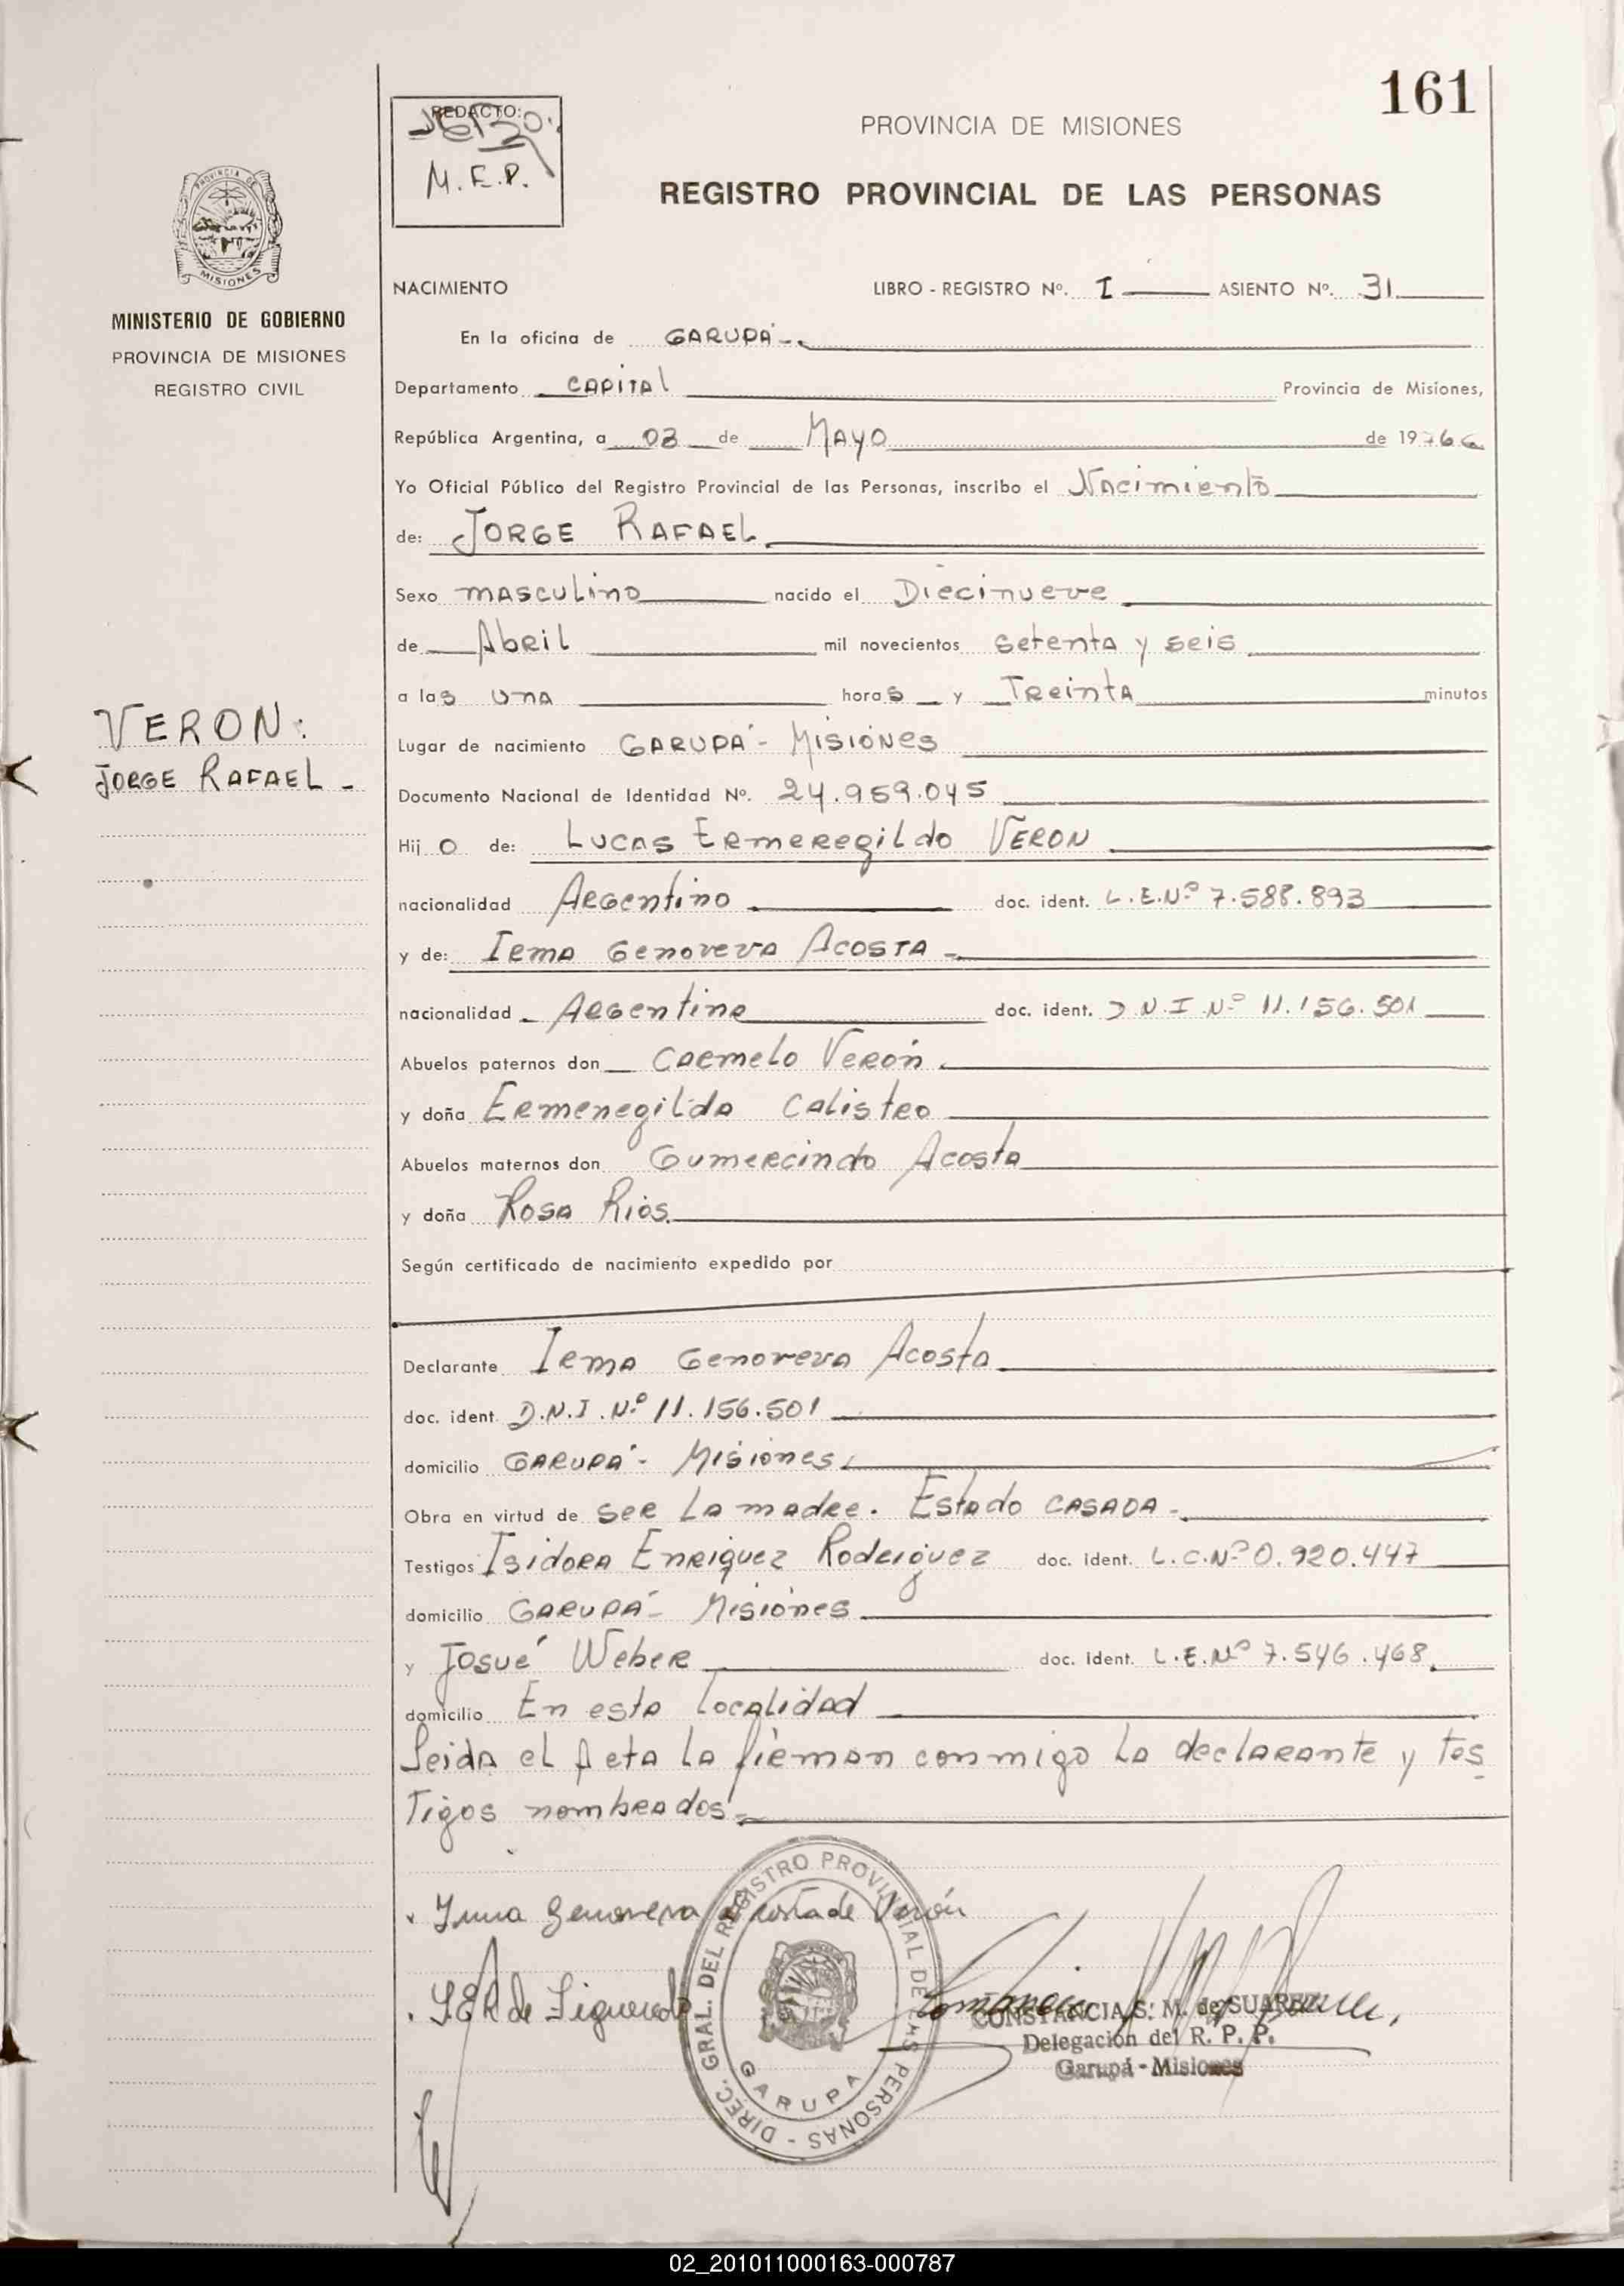 161
REDACTO:
M.E.P.
PROVINCIA DE MISIONES
REGISTRO PROVINCIAL DE LAS PERSONAS
PROVINCIA DE
MISIONES
MINISTERIO DE GOBIERNO
PROVINCIA DE MISIONES
REGISTRO CIVIL
NACIMIENTO LIBRO - REGISTRO Nº. I ASIENTO Nº. 31
En la oficina de GARUPÁ -.
Departamento CAPITAL Provincia de Misiones,
República Argentina, a 03 de MAYO de 1976
Yo Oficial Público del Registro Provincial de las Personas, inscribo el Nacimiento
de: JORGE RAFAEL
Sexo masculino nacido el Diecinueve
de Abril mil novecientos setenta y seis
a las una horas y Treinta minutos
VERON:
JORGE RAFAEL -
Lugar de nacimiento GARUPÁ - Misiones
Documento Nacional de Identidad Nº. 24.959.045
Hijo de: Lucas Ermeregildo VERON
nacionalidad Argentino doc. ident. L.E.Nº 7.588.893
y de: Irma Genoveva Acosta -
nacionalidad - Argentina doc. ident. D.N.I.Nº 11.156.501
Abuelos paternos don Carmelo Verón
y doña Ermenegilda Calistro
Abuelos maternos don Gumercindo Acosta
y doña Rosa Rios
Según certificado de nacimiento expedido por
Declarante Irma Genoveva Acosta
doc. ident. D.N.I.Nº 11.156.501
domicilio GARUPÁ - Misiones
Obra en virtud de ser la madre. Estado CASADA -
Testigos Isidora Enriquez Rodriguez doc. ident. L.C.Nº 0.920.447
domicilio GARUPÁ - Misiones
y Josué Weber doc. ident. L.E.Nº 7.546.468
domicilio En esta localidad
Leida el Acta la firman conmigo la declarante y tes
tigos nombrados -
Irma Genoveva Acosta de Verón
DIREC. GRAL. DEL REGISTRO PROVINCIAL DE LAS PERSONAS -
GARUPA
S.E.R de Figueredo
CONSTANCIA S. M. de SUAREZ
Delegación del R. P. P.
Garupá - Misiones
02_201011000163-000787